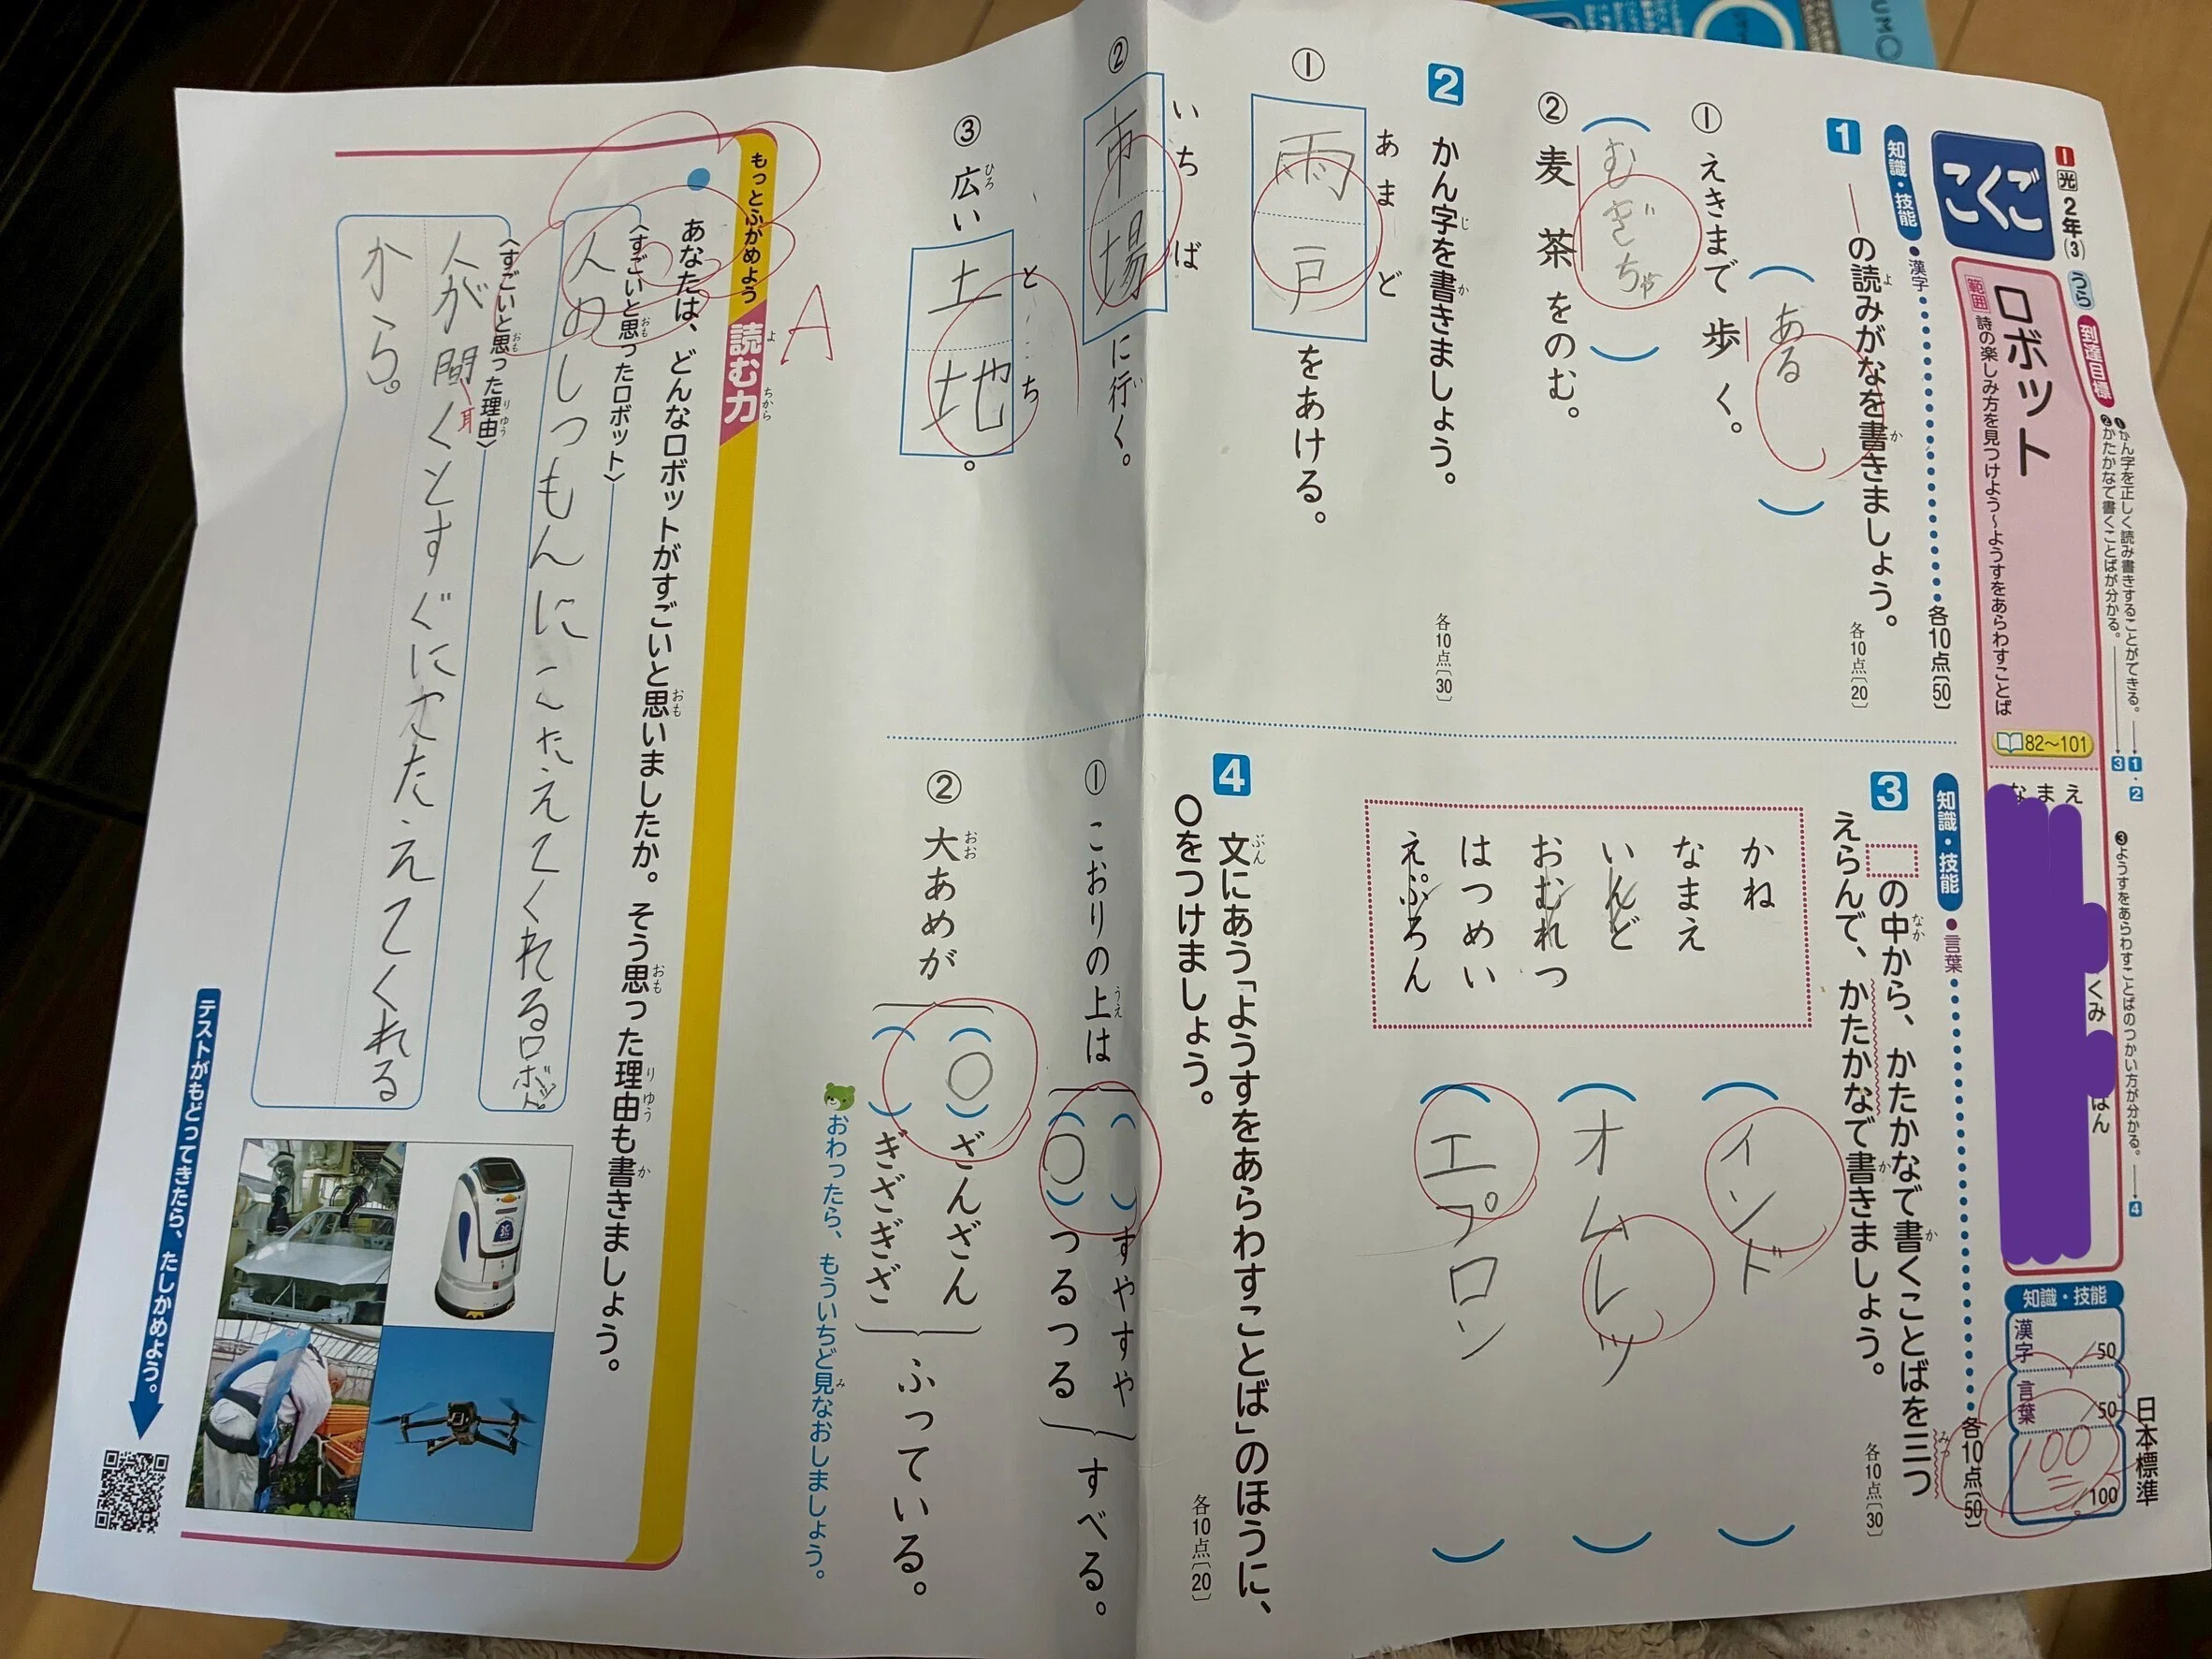 1 光 2年(3) うら
到達目標
❶かん字を正しく読み書きすることができる。 1・2
❷かたかなで書くことばが分かる。 3
❸ようすをあらわすことばのつかい方が分かる。 4
日本標準
こくご
ロボット
範囲 詩の楽しみ方を見つけよう～ようすをあらわすことば
82～101
なまえ
くみ
ばん
知識・技能
漢字 /50
言葉 /50
100 /100
知識・技能 ●漢字 各10点〔50〕
1 ――の読みがなを書きましょう。 各10点〔20〕
よ か
(ある)
① えきまで歩く。
(むぎちゃ)
② 麦茶をのむ。
2 かん字を書きましょう。 各10点〔30〕
じ か
あまど
① 雨戸をあける。
いちば
② 市場に行く。
い
とち
③ 広い土地。
ひろ
知識・技能 ●言葉 各10点〔50〕
3 □の中から、かたかなで書くことばを三つ
なか か みっ
えらんで、かたかなで書きましょう。 各10点〔30〕
か
かね
なまえ
いんど
おむれつ
はつめい
えぷろん
(インド)
(オムレツ)
(エプロン)
4 文にあう「ようすをあらわすことば」のほうに、
ぶん
〇をつけましょう。 各10点〔20〕
① こおりの上は
うえ
( )すやすや
(〇)つるつる
すべる。
② 大あめが
おお
(〇)ざんざん
( )ぎざぎざ
ふっている。
おわったら、もういちど見なおしましょう。
み
もっとふかめよう 読む力
よ ちから
A
● あなたは、どんなロボットがすごいと思いましたか。そう思った理由も書きましょう。
おも おも りゆう か
〈すごいと思ったロボット〉
おも
人のしつもんにこたえてくれるロボット。
〈すごいと思った理由〉
おも りゆう
人が間くとすぐにこたえてくれる
耳
から。
テストがもどってきたら、たしかめよう。